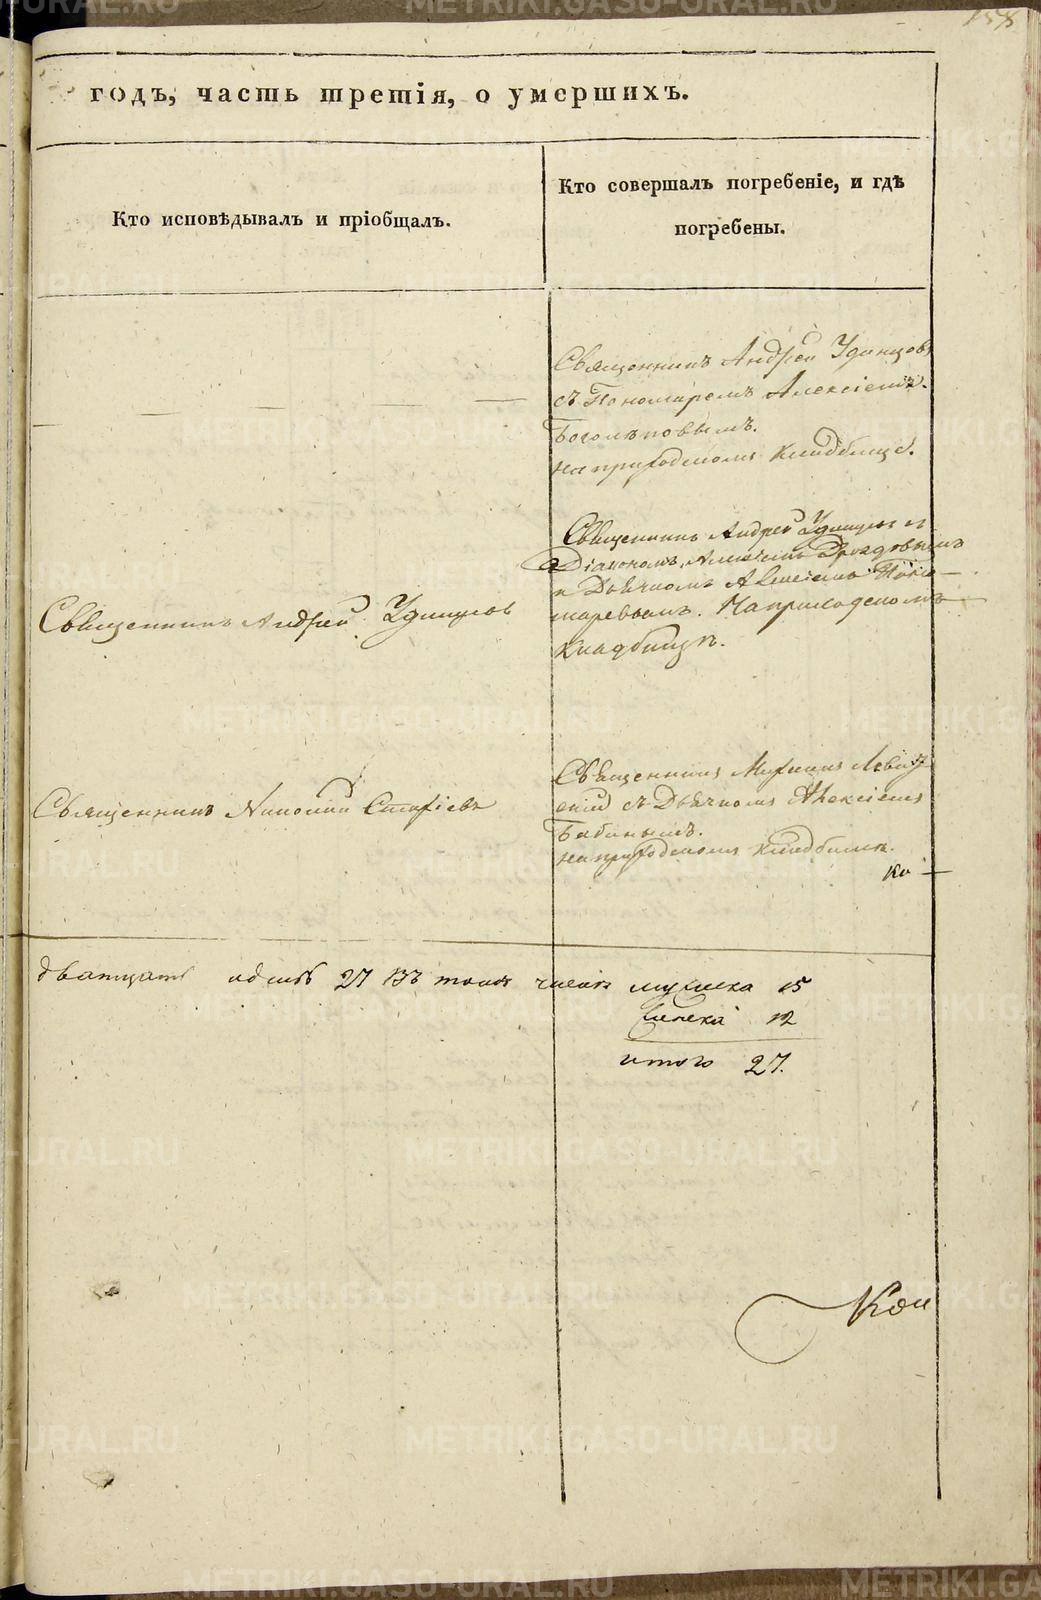 158
годъ, часть третія, о умершихъ.
Кто исповѣдывалъ и пріобщалъ.
Кто совершалъ погребеніе, и гдѣ
погребены.
Священникъ Андрей Удинцовъ
съ Пономаремъ Алексіемъ
Боголѣповымъ.
на приходскомъ кладбище.
Священникъ Андрей Удинцов
Священникъ Андрей Удинцов
Діакономъ Алексіемъ Дроздовымъ
и Дьячкомъ Алексіемъ Поно-
маревымъ. На приходскомъ
кладбищѣ.
Священникъ Стефіевъ
Священникъ Левиц-
кій съ Дьячкомъ Алексіемъ
Бабинымъ.
на приходскомъ кладбищѣ.
Ко
дватцать 27 въ томъ числѣ мужеска 15
женска 12
итого 27.
Кои
METRIKI.GASO-URAL.RU